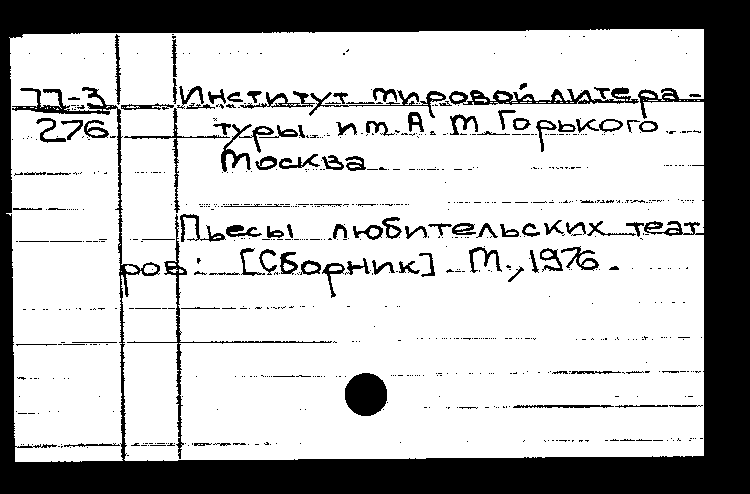 77-3 Институт мировой литера-
276 туры им. А. М. Горького.
Москва.
Пьесы любительских теат
ров: [Сборник]. М., 1976.